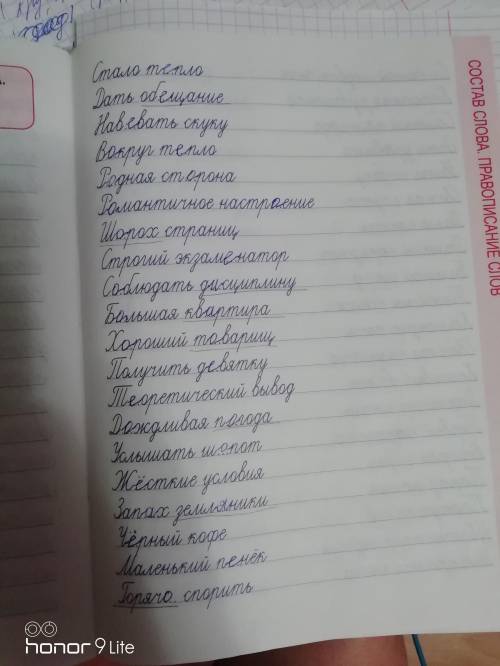 СОСТАВ СЛОВА. ПРАВОПИСАНИЕ СЛОВ
Стало тепло
Дать обещание
Навевать скуку
Вокруг тепло
Родная сторона
Романтичное настроение
Шорох страниц
Строгий экзаменатор
Соблюдать дисциплину
Большая квартира
Хороший товарищ
Получить девятку
Теоретический вывод
Дождливая погода
Услышать шопот
Жёсткие условия
Запах земляники
Чёрный кофе
Маленький пенёк
Горячо спорить
honor 9 Lite